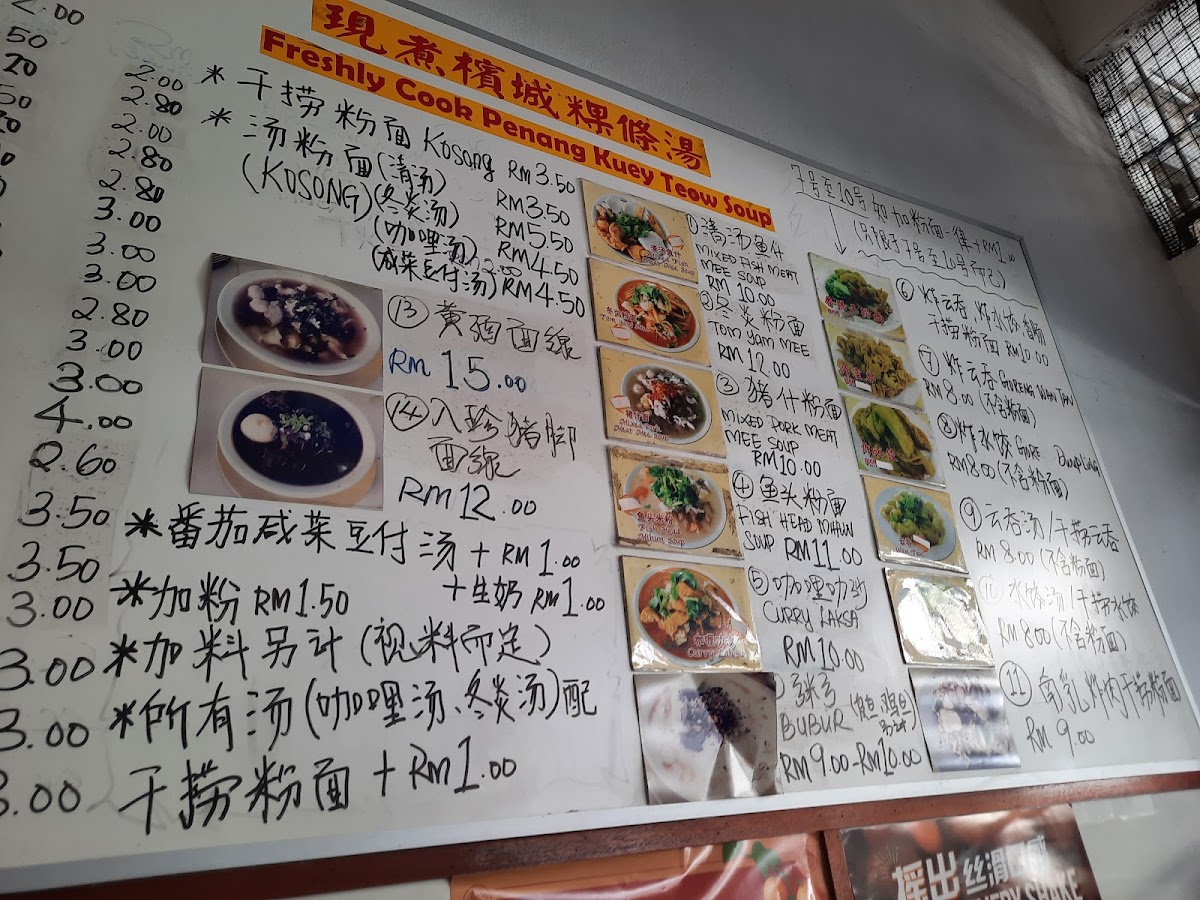 現煮檳城粿條湯
Freshly Cook Penang Kuey Teow Soup
2.00
50
20
2.00
2.80
2.00
2.80
2.80
3.00
3.00
3.00
2.80
3.00
3.00
4.00
2.60
3.50
3.50
3.00
3.00
3.00
3.00
* 干捞粉面 Kosong RM 3.50
* 汤粉面 (清汤) RM3.50
(KOSONG) (冬炎汤) RM5.50
(咖哩汤) RM4.50
(咸菜豆付汤) RM4.50
⑬ 黄酒面線
RM 15.00
⑭ 八珍猪脚
面線
RM 12.00
* 番茄咸菜豆付汤 + RM 1.00
+ 生奶 RM 1.00
* 加粉 RM 1.50
* 加料另计 (视料而定)
* 所有汤 (咖哩汤、冬炎汤) 配
干捞粉面 + RM 1.00
① 清汤鱼什
MIXED FISH MEAT
MEE SOUP
RM 10.00
② 冬炎粉面
TOM YAM MEE
RM 12.00
③ 猪什粉面
MIXED PORK MEAT
MEE SOUP
RM 10.00
④ 鱼头粉面
FISH HEAD MIHUN
SOUP RM 11.00
⑤ 咖哩叻沙
CURRY LAKSA
RM 10.00
BUBUR
RM 9.00-RM 10.00
7号至10号如加粉面一律+RM2.00
(只限于7号至10号而已)
⑥ 炸云吞,炸水饺
干捞粉面 RM 10.00
⑦ 炸云吞 GORENG WAN TAN
RM 8.00 (不含粉面)
⑧ 炸水饺 Dumpling
RM 8.00 (不含粉面)
⑨ 云吞汤/干捞云吞
RM 8.00 (不含粉面)
⑩ 水饺汤/干捞水饺
RM 8.00 (不含粉面)
⑪ 南乳炸肉干捞粉面
RM 9.00
摇出 丝滑口感